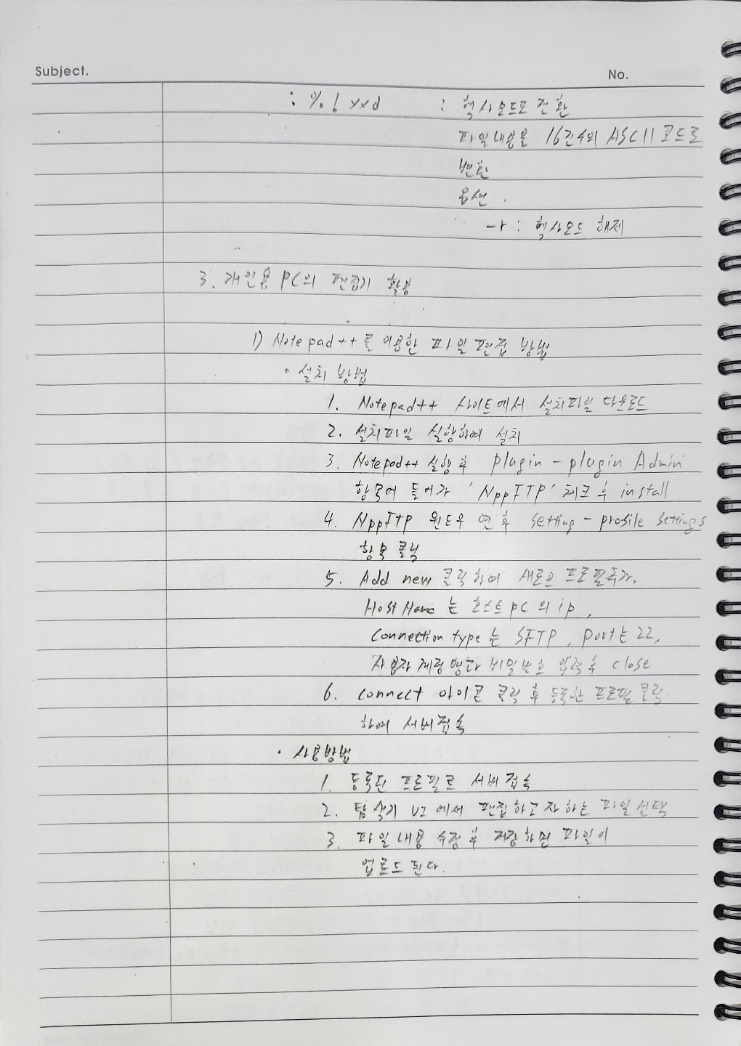 Subject.
No.
:%!xxd : 헥사모드로 전환
파일내용을 16진수의 ASCII 코드로
변환
옵션.
-r : 헥사모드 해제
3. 개인용 PC의 편집기 활용
1) Notepad++를 이용한 파일 편집 방법
• 설치 방법
1. Notepad++ 사이트에서 설치파일 다운로드
2. 설치파일 실행하여 설치
3. Notepad++ 실행 후 plugin - plugin Admin
항목에 들어가 'NppFTP' 체크 후 install
4. NppFTP 윈도우 연 후 setting - profile settings
항목 클릭
5. Add new 클릭하여 새로운 프로필 추가.
Host Name 는 호스트 pc 의 ip,
Connection type 는 SFTP, port는 22,
사용자 계정 명과 비밀번호 입력 후 close
6. connect 아이콘 클릭 후 등록한 프로필 클릭
하여 서버접속
• 사용방법
1. 등록된 프로필로 서버 접속
2. 탐색기 UI에서 편집하고자 하는 파일 선택
3. 파일 내용 수정 후 저장하면 파일이
업로드 된다.